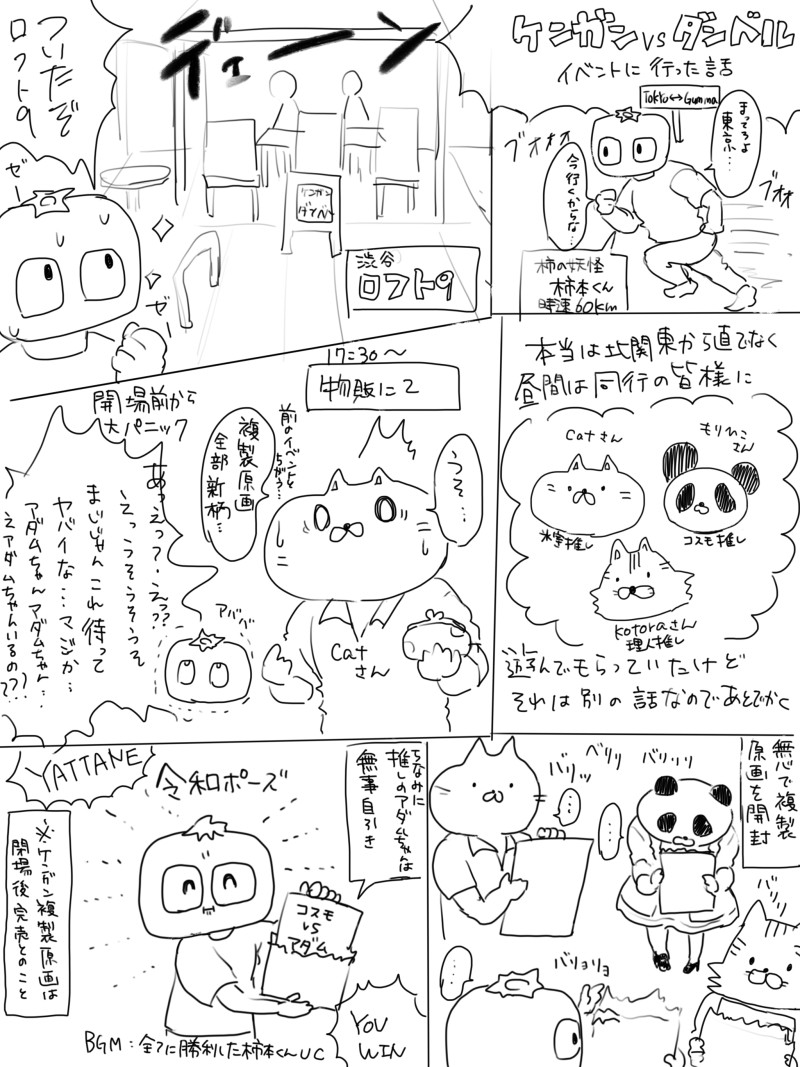 ケンガンvsダンベル
イベントに行った話
Tokyo↔Gunma
まってろよ
東京…
今行くからな…
ブオオオ
ブオオ
柿の妖怪
柿本くん
時速60km
ついたぞ
ロフト9
デェーーン
ゼー
ゼー
ケンガン
ダンベル
渋谷
ロフト9
本当は北関東から直でなく
昼間は同行の皆様に
Catさん
もりひこ
さん
氷室推し
コスモ推し
kotoraさん
理人推し
遊んでもらっていたけど
それは別の話なのであとでかく
17:30〜
物販にて
うそ…
前のイベントと
ちがう…
複製原画
全部新柄…
Cat
さん
開場前から
大パニック
あっえっ?・えっ??
えっうそうそうそ
まいじゃんこれ待って
ヤバイな…マジか…
アダムちゃんアダムちゃん…
えアダムちゃんいるの??!
アババ
無心で複製
原画を開封
バリッ
ベリッ
バリッッ
…
……
バリッ
……
バリョリョ
ちなみに
推しのアダムちゃんは
無事自引き
YATTANE
令和ポーズ
コスモ
VS
アダム
※ケンガン複製原画は
開場後完売とのこと
YOU
WIN
BGM:全てに勝利した柿本くんUC